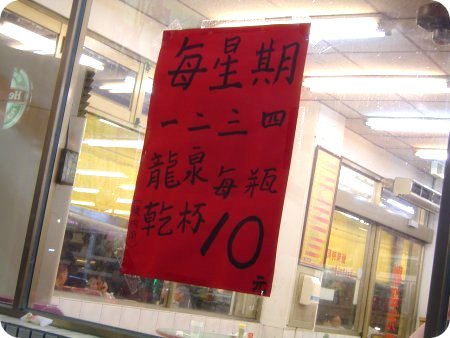 每星期
一二三四
龍泉每瓶
乾杯10元
He